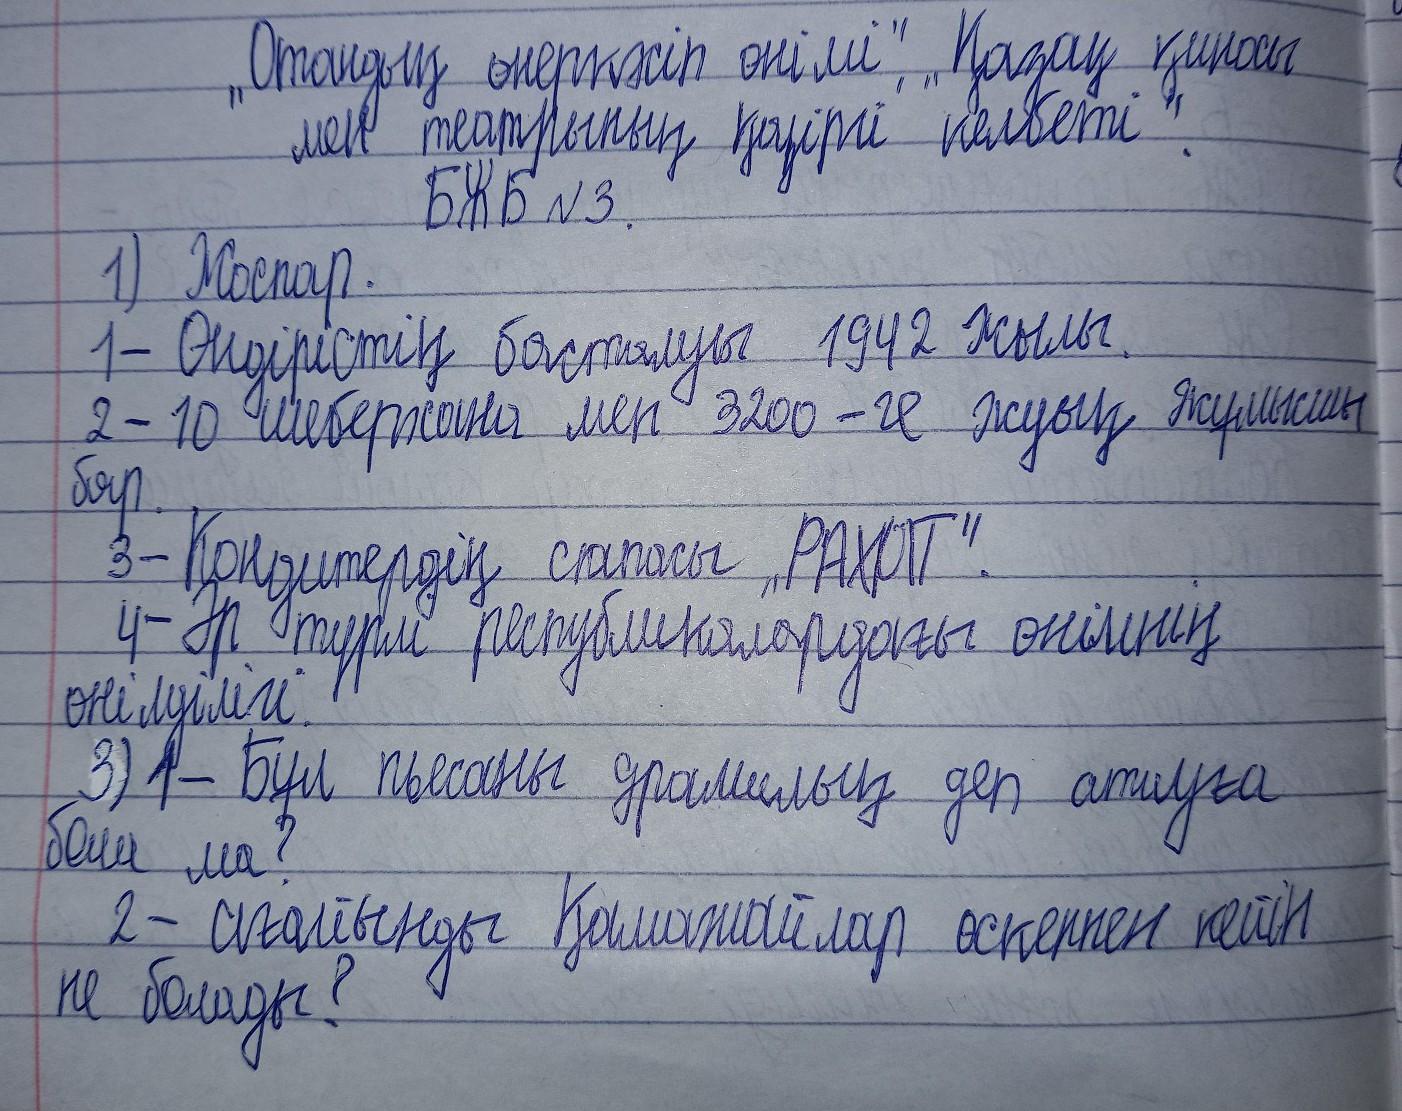 „Отандық өнеркәсіп өнімі", „Қазақ киносы
мен театрының қазіргі келбеті".
БЖБ №3.
1) Жоспар.
1- Өндірістің басталуы 1942 жылы.
2- 10 шеберхана мен 3200-ге жуық жұмысшы
бар.
3- Кондитердің сапасы „РАХАТ".
4- Әр түрлі республикалардағы өнімнің
өнілділігі.
3) 1- Бұл пьесаны драмалық деп атауға
бола ма?
2- ағайынды Қаможайлар өскеннен кейін
не болады?